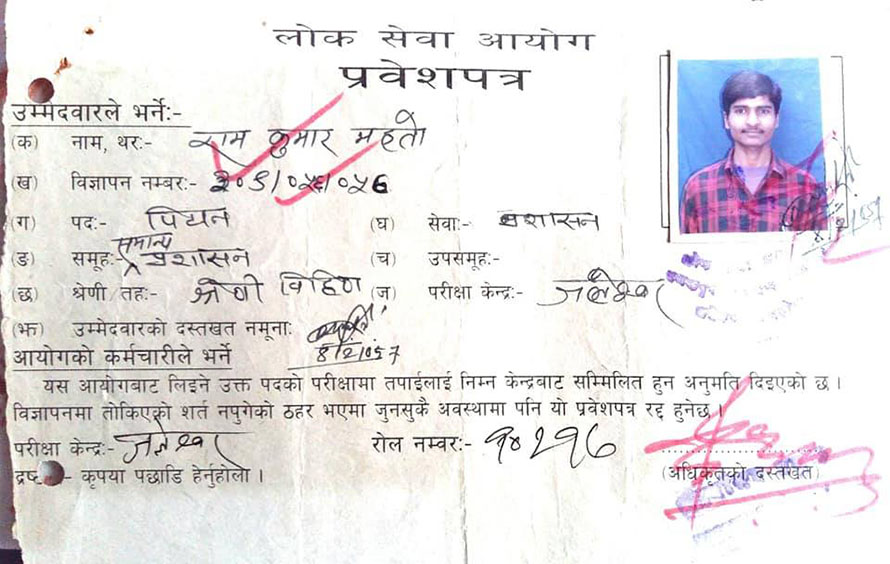 लोक सेवा आयोग
प्रवेशपत्र
उम्मेदवारले भर्नेः-
(क) नाम, थरः- राम कुमार महतो
(ख) विज्ञापन नम्बरः- /०५६/०५७
(ग) पदः- पियन (घ) सेवाः- प्रशासन
(ङ) समूहः- सामान्य प्रशासन (च) उपसमूहः-
(छ) श्रेणी/तहः- श्रेणी विहिन (ज) परीक्षा केन्द्रः- जलेश्वर
(झ) उम्मेदवारको दस्तखत नमूनाः
8/2/057
आयोगको कर्मचारीले भर्ने
यस आयोगबाट लिइने उक्त पदको परीक्षामा तपाईलाई निम्न केन्द्रबाट सम्मिलित हुन अनुमति दिइएको छ ।
विज्ञापनमा तोकिएको शर्त नपुगेको ठहर भएमा जुनसुकै अवस्थामा पनि यो प्रवेशपत्र रद्द हुनेछ ।
परीक्षा केन्द्रः- जलेश्वर रोल नम्बरः-
(अधिकृतको दस्तखत)
कृपया पछाडि हेर्नुहोला ।